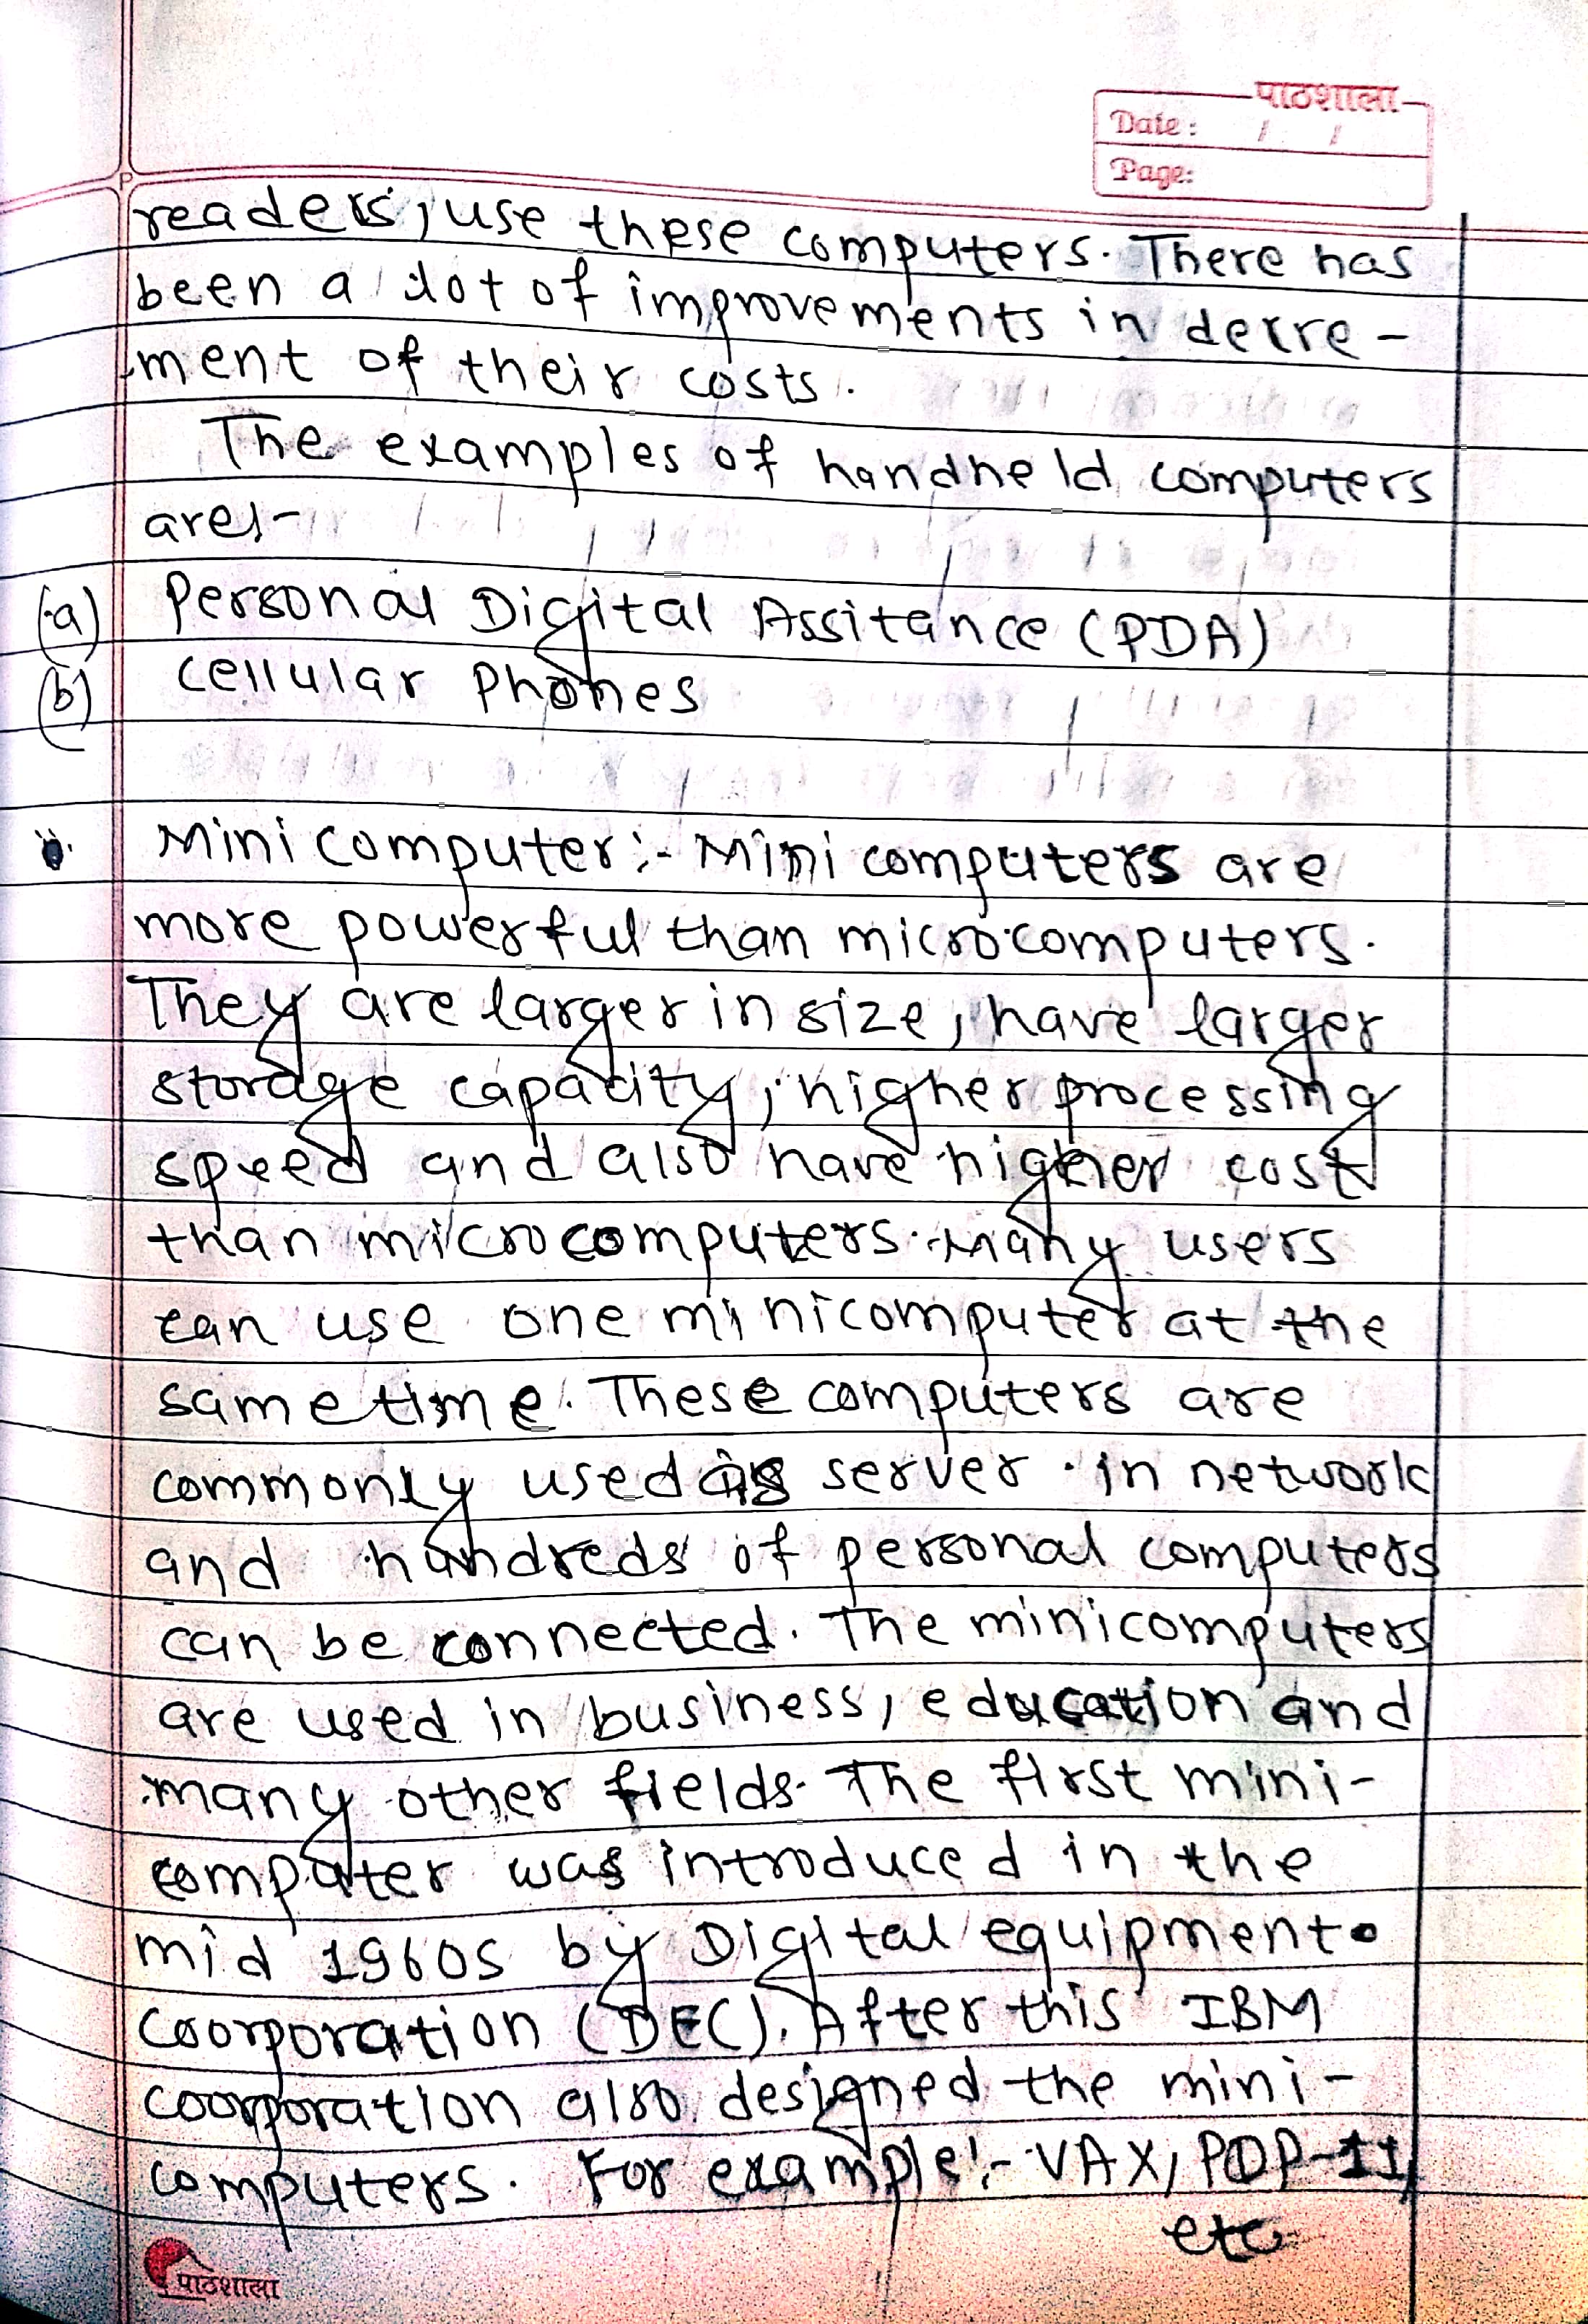 पाठशाला
Date : / /
Page:
readers, use these computers. There has
been a lot of improvements in decre-
ment of their costs.
The examples of handheld computers
are:-
(a) Personal Digital Assitance (PDA)
(b) Cellular Phones
ii. Mini computer:- Mini computers are
more powerful than microcomputers.
They are larger in size, have larger
storage capacity, higher processing
speed and also have higher cost
than microcomputers. Many users
can use one minicomputer at the
same time. These computers are
commonly used as server in network
and hundreds of personal computers
can be connected. The minicomputers
are used in business, education and
many other fields. The first mini-
computer was introduced in the
mid 1960s by Digital equipment
Coorporation (DEC). After this IBM
coorporation also designed the mini-
computers. For example:- VAX, PDP-11,
etc
पाठशाला